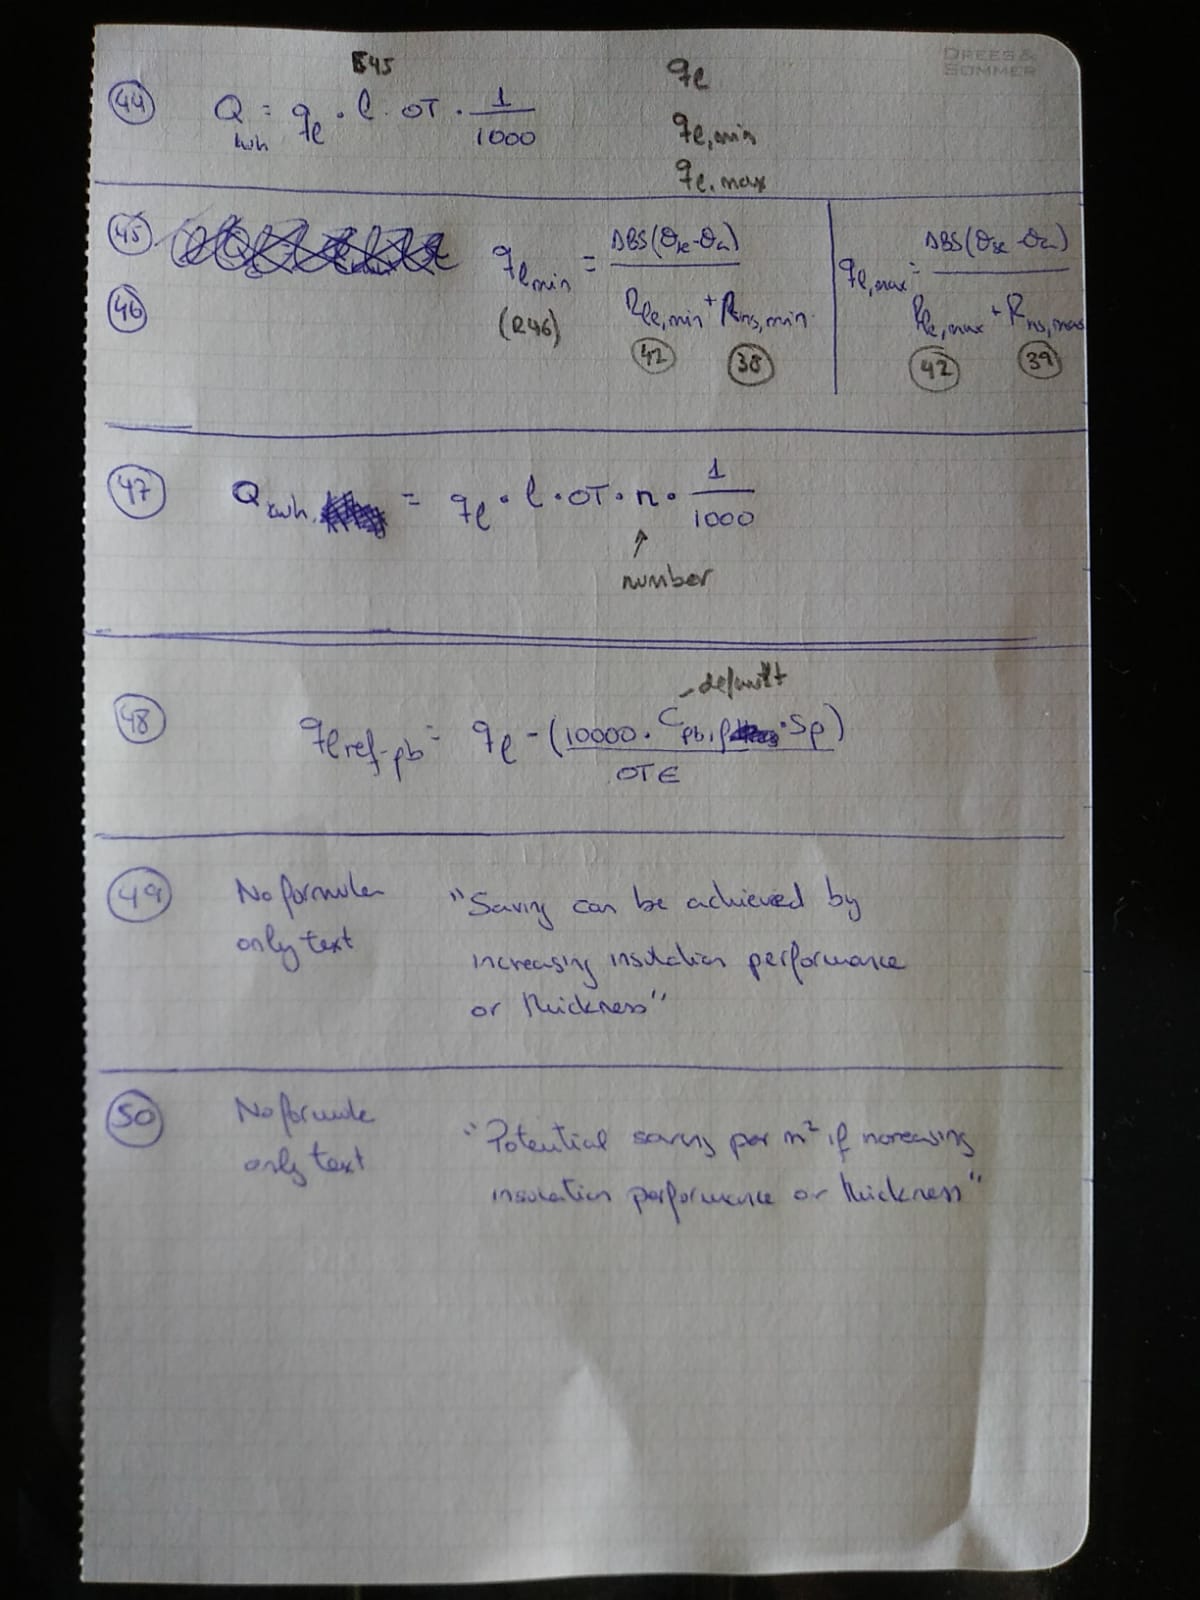 DREES &
SOMMER
E45
44 Q kwh = qℓ · ℓ · OT · 1/1000
qℓ
qℓ,min
qℓ,max
45
46
qℓ min = ABS(θse-θa) / Rℓe,min + Rins,min
(R46)
42 38
qℓ,max = ABS(θse-θa) / Rℓe,max + Rins,max
42 39
47 Q kwh = qℓ · ℓ · OT · n · 1/1000
↑
number
default
48 qℓ ref-pb = qℓ - (10000 · Cpb,p · Sp) / OT€
49 No formula
only text
"Saving can be achieved by
increasing insulation performance
or thickness"
50 No formula
only text
"Potential saving per m² if increasing
insulation performance or thickness"